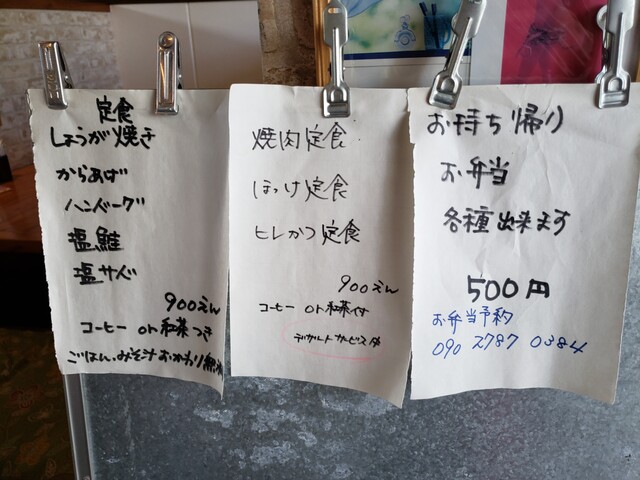 定食
しょうが焼き
からあげ
ハンバーグ
塩鮭
塩サバ
900えん
コーヒー or 紅茶つき
ごはん、みそ汁おかわり無料
焼肉定食
ほっけ定食
ヒレかつ定食
900えん
コーヒー or 紅茶付
お持ち帰り
お弁当
各種出来ます
500円
お弁当予約
090 2787 0384